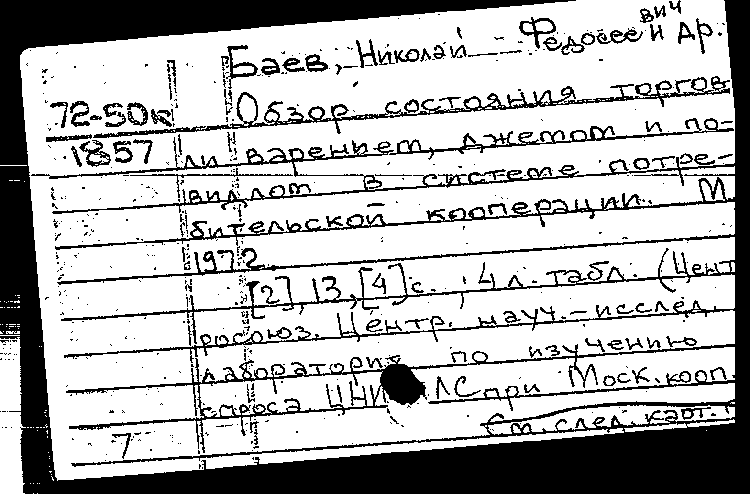 Баев, Николай Федосеевич и др.
72-50к Обзор состояния торгов
1857 ли вареньем, джемом и по-
видлом в системе потре-
бительской кооперации. М.
1972.
[2], 13, [4] с.; 4 л. табл. (Цент
росоюз. Центр. науч.-исслед.
лаборатория по изучению
спроса ЦНИ ЛС при Моск. кооп.
7 См. след. карт.